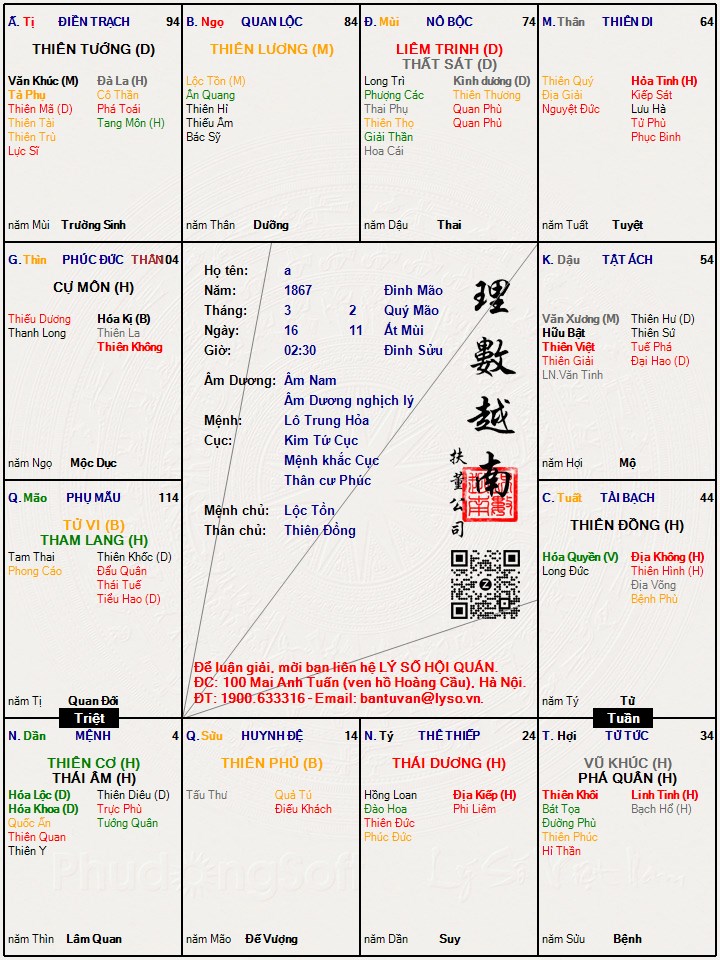 Ấ. Tị ĐIỀN TRẠCH 94
THIÊN TƯỚNG (D)
Văn Khúc (M) Đà La (H)
Tả Phụ Cô Thần
Thiên Mã (D) Phá Toái
Thiên Tài Tang Môn (H)
Thiên Trù
Lực Sĩ
năm Mùi Trường Sinh
B. Ngọ QUAN LỘC 84
THIÊN LƯƠNG (M)
Lộc Tồn (M)
Ân Quang
Thiên Hỉ
Thiếu Âm
Bác Sỹ
năm Thân Dưỡng
Đ. Mùi NÔ BỘC 74
LIÊM TRINH (D)
THẤT SÁT (D)
Long Trì Kình dương (D)
Phượng Các Thiên Thương
Thai Phụ Quan Phù
Thiên Thọ Quan Phủ
Giải Thần
Hoa Cái
năm Dậu Thai
M. Thân THIÊN DI 64
Thiên Quý Hỏa Tinh (H)
Địa Giải Kiếp Sát
Nguyệt Đức Lưu Hà
Tử Phù
Phục Binh
năm Tuất Tuyệt
G. Thìn PHÚC ĐỨC THÂN 104
CỰ MÔN (H)
Thiếu Dương Hóa Kị (B)
Thanh Long Thiên La
Thiên Không
năm Ngọ Mộc Dục
Họ tên: a
Năm: 1867 Đinh Mão
Tháng: 3 2 Quý Mão
Ngày: 16 11 Ất Mùi
Giờ: 02:30 Đinh Sửu
Âm Dương: Âm Nam
Âm Dương nghịch lý
Mệnh: Lô Trung Hỏa
Cục: Kim Tứ Cục
Mệnh khắc Cục
Thân cư Phúc
Mệnh chủ: Lộc Tồn
Thân chủ: Thiên Đồng
理數越南
扶董公司
Để luận giải, mời bạn liên hệ LÝ SỐ HỘI QUÁN.
ĐC: 100 Mai Anh Tuấn (ven hồ Hoàng Cầu), Hà Nội.
ĐT: 1900.633316 - Email: bantuvan@lyso.vn.
K. Dậu TẬT ÁCH 54
Văn Xương (M) Thiên Hư (D)
Hữu Bật Thiên Sứ
Thiên Việt Tuế Phá
Thiên Giải Đại Hao (D)
LN.Văn Tinh
năm Hợi Mộ
Q. Mão PHỤ MẪU 114
TỬ VI (B)
THAM LANG (H)
Tam Thai Thiên Khốc (D)
Phong Cáo Đẩu Quân
Thái Tuế
Tiểu Hao (D)
năm Tị Quan Đới
C. Tuất TÀI BẠCH 44
THIÊN ĐỒNG (H)
Hóa Quyền (V) Địa Không (H)
Long Đức Thiên Hình (H)
Địa Võng
Bệnh Phù
năm Tý Tử
Triệt
Tuần
N. Dần MỆNH 4
THIÊN CƠ (H)
THÁI ÂM (H)
Hóa Lộc (D) Thiên Diêu (D)
Hóa Khoa (D) Trực Phù
Quốc Ấn Tướng Quân
Thiên Quan
Thiên Y
năm Thìn Lâm Quan
Q. Sửu HUYNH ĐỆ 14
THIÊN PHỦ (B)
Tấu Thư Quả Tú
Điếu Khách
năm Mão Đế Vượng
N. Tý THÊ THIẾP 24
THÁI DƯƠNG (H)
Hồng Loan Địa Kiếp (H)
Đào Hoa Phi Liêm
Thiên Đức
Phúc Đức
năm Dần Suy
T. Hợi TỬ TỨC 34
VŨ KHÚC (H)
PHÁ QUÂN (H)
Thiên Khôi Linh Tinh (H)
Bát Tọa Bạch Hổ (H)
Đường Phù
Thiên Phúc
Hỉ Thần
năm Sửu Bệnh